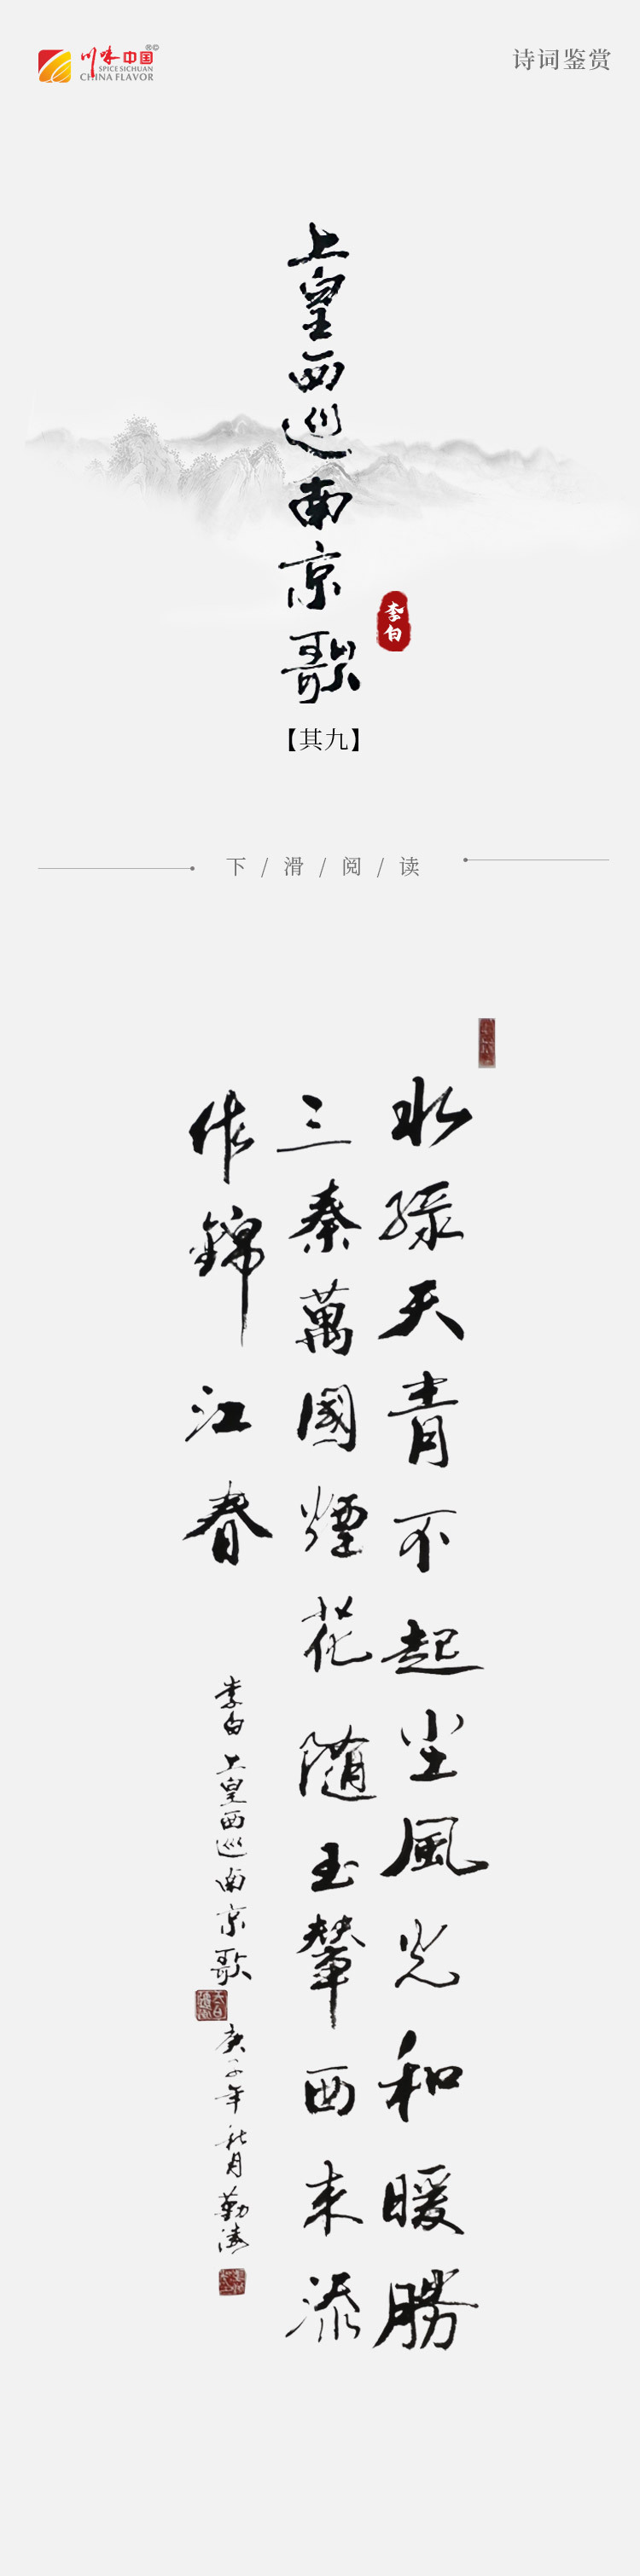 川味中国®©
SPICE SICHUAN
CHINA FLAVOR
诗词鉴赏
上皇西巡南京歌
李白
【其九】
下/滑/阅/读
水緑天青不起尘風光和暖勝
三秦萬國煙花随玉輦西来添
作錦江春
李白上皇西巡南京歌
庚子年秋月勤